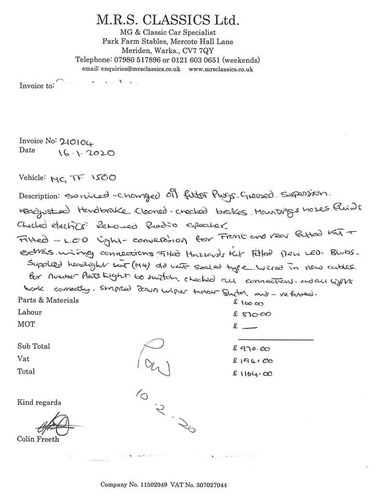 M.R.S. CLASSICS Ltd.
MG & Classic Car Specialist
Park Farm Stables, Mercote Hall Lane
Meriden, Warks., CV7 7QY
Telephone: 07980 517896 or 0121 603 0651 (weekends)
email: enquiries@mrsclassics.co.uk www.mrsclassics.co.uk
Invoice to:
Invoice No: 210104
Date 16.1.2020
Vehicle: MG TF 1500
Description: Serviced - changed oil filter Plugs. Greased Suspension.
readjusted Handbrake Cleaned - checked brakes. Hoses. Fluids
Checked electrics Removed Radio speaker.
Fitted - LED light - conversion for Front and rear fitted Kit +
extras wiring connections Fitted Hazzards Kit fitted new LED. Bulbs.
Supplied headlight unit (H4) old unit sealed type. Wired in new cables
for Number Plate light to switch, checked all connections. and all lights
work correctly. Striped Down wiper motor and - refitted.
Parts & Materials £ 100.00
Labour £ 870.00
MOT £ —
Sub Total £ 970.00
Vat £ 194.00
Total £ 1164.00
Paid
10.2.20
Kind regards
Colin Freeth
Company No. 11502949 VAT No. 307027044